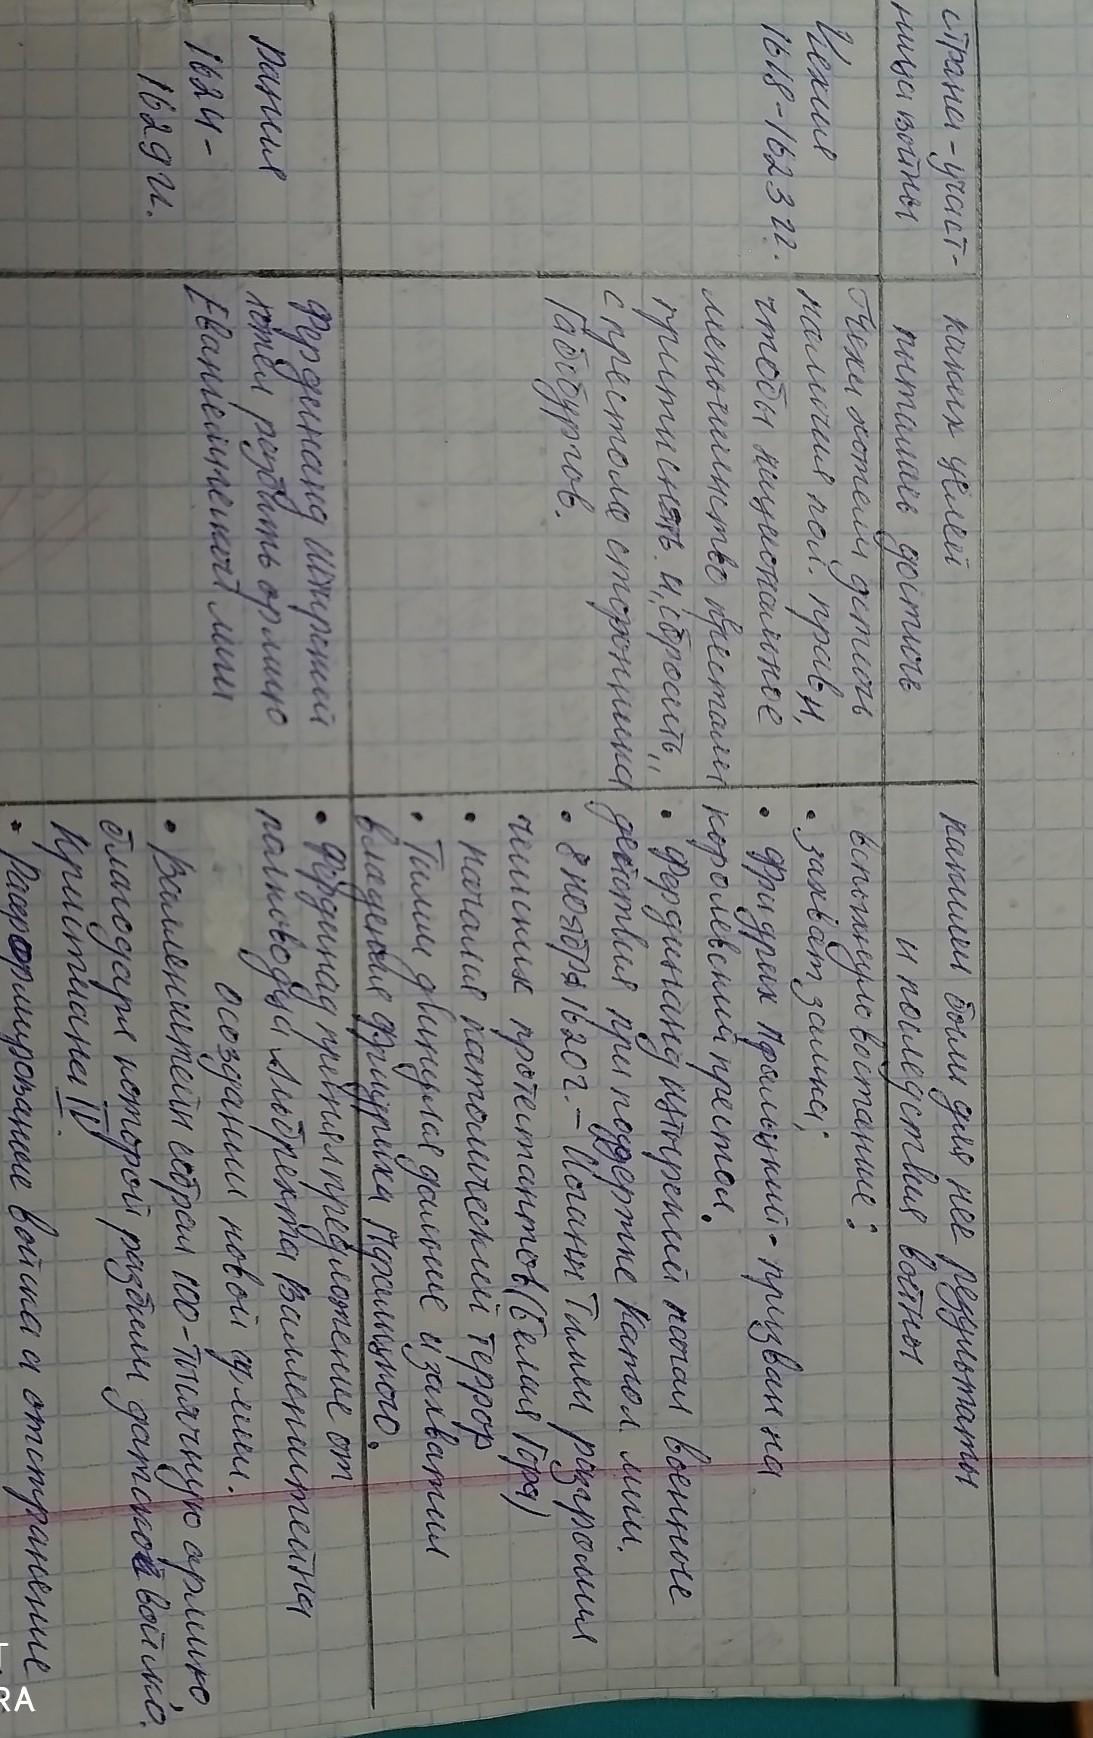 страна-участ-
ница войны
каких целей
пыталась достичь
какими были для неё результаты
и последствия войны
Чехия
1618-1623 гг.
Чехи хотели
наличия рел. прав и,
чтобы национальное
меньшинство престали
притиснять. и „сбросить"
с престола сторонника
Габсбургов.
вспыхнуло востание:
• захват замка;
• Фридрих Пфальцкий - призван на
королевский престол.
• Фердинанд Штирский начал военные
действия при поддержке Катол. лиги.
• 8 ноября 1620 г. - Иоганн Тилли разгромил
чешских протестантов (Белая Гора)
• начался католический террор
• Тилли двинулся дальше и захватил
владение Фридриха Пфальцкого.
Дания
1624-
1629 гг.
Фердинанд Штирский
хотел разбить армию
Евангелической лиги
• Фердинад принял предложение от
полководца Альбрехта Валленштейна
о создании новой армии.
• Валленштейн собрал 100-тысячную армию
благодаря которой разбили датское войско.
Кристиана IV.
• Расформирование войска и отстранение